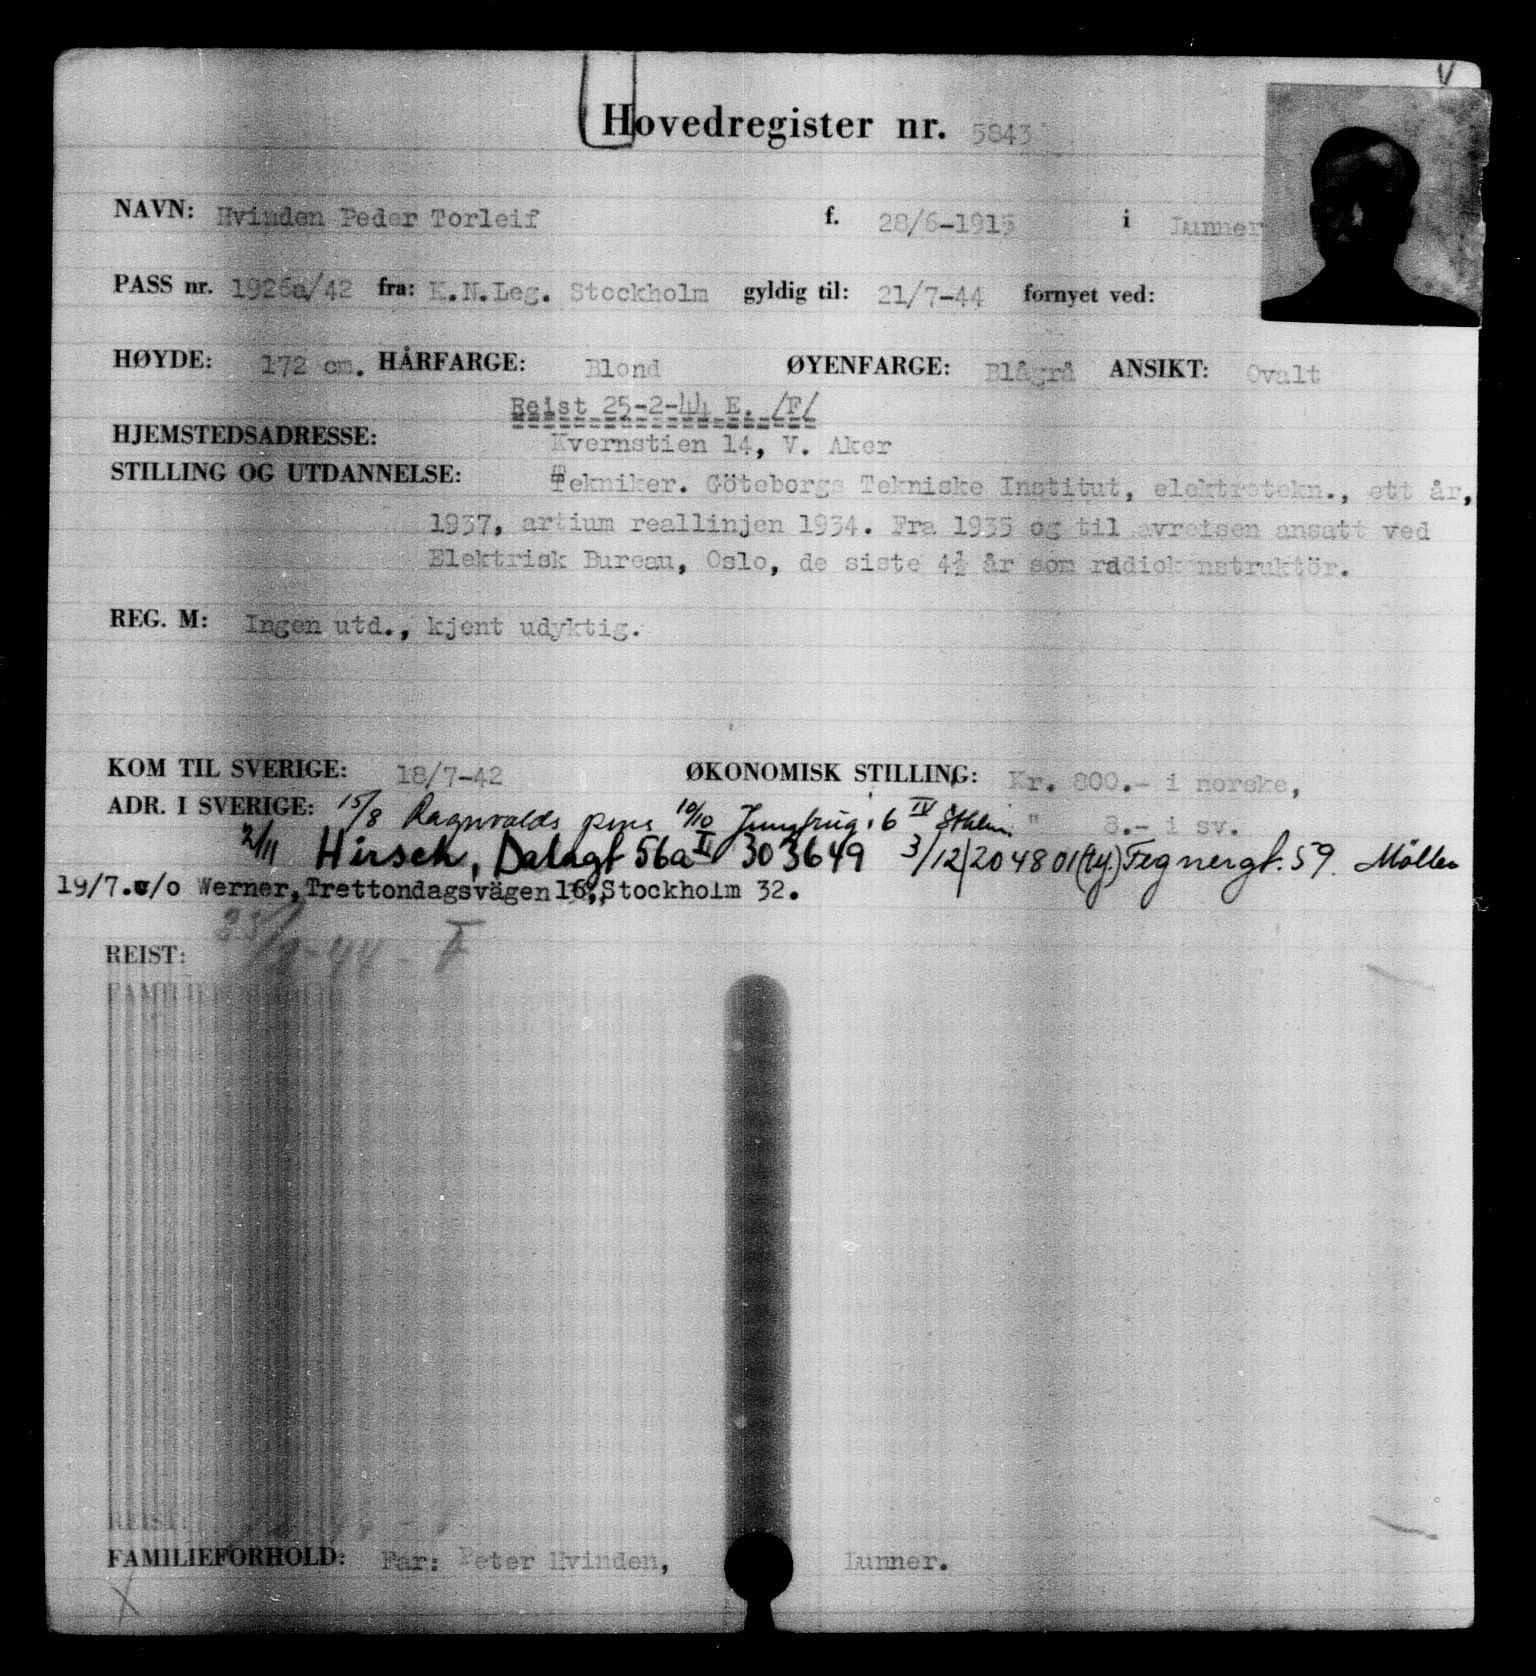 Hovedregister nr. 5843
NAVN: Hvinden Peder Torleif f. 28/6-1915 i Lunner
PASS nr. 1926a/42 fra: K.N.Leg. Stockholm gyldig til: 21/7-44 fornyet ved:
HØYDE: 172 cm. HÅRFARGE: Blond ØYENFARGE: Blågrå ANSIKT: Ovalt
Reist 25-2-44 E. /F/
HJEMSTEDSADRESSE: Kvernstien 14, V. Aker
STILLING OG UTDANNELSE: Tekniker. Göteborgs Tekniske Institut, elektrotekn., ett år,
1937, artium reallinjen 1934. Fra 1935 og til avreisen ansatt ved
Elektrisk Bureau, Oslo, de siste 4½ år som radiokonstruktör.
REG. M: Ingen utd., kjent udyktig.
KOM TIL SVERIGE: 18/7-42 ØKONOMISK STILLING: Kr. 800.- i norske,
ADR. I SVERIGE: 15/8 Ragnvalds pens 10/10 Jungfrug. 6 IV Sthlm. " 8.- i sv.
2/11 Hirsch, Dalagt 56a II 303649 3/12/204801(ty.) Tegnergt. 59. Möller
19/7. c/o Werner, Trettondagsvägen 16, Stockholm 32.
REIST: 25/2-44 - F
FAMILIEFORHOLD:
REIST:
FAMILIEFORHOLD: Far: Peter Hvinden, Lunner.